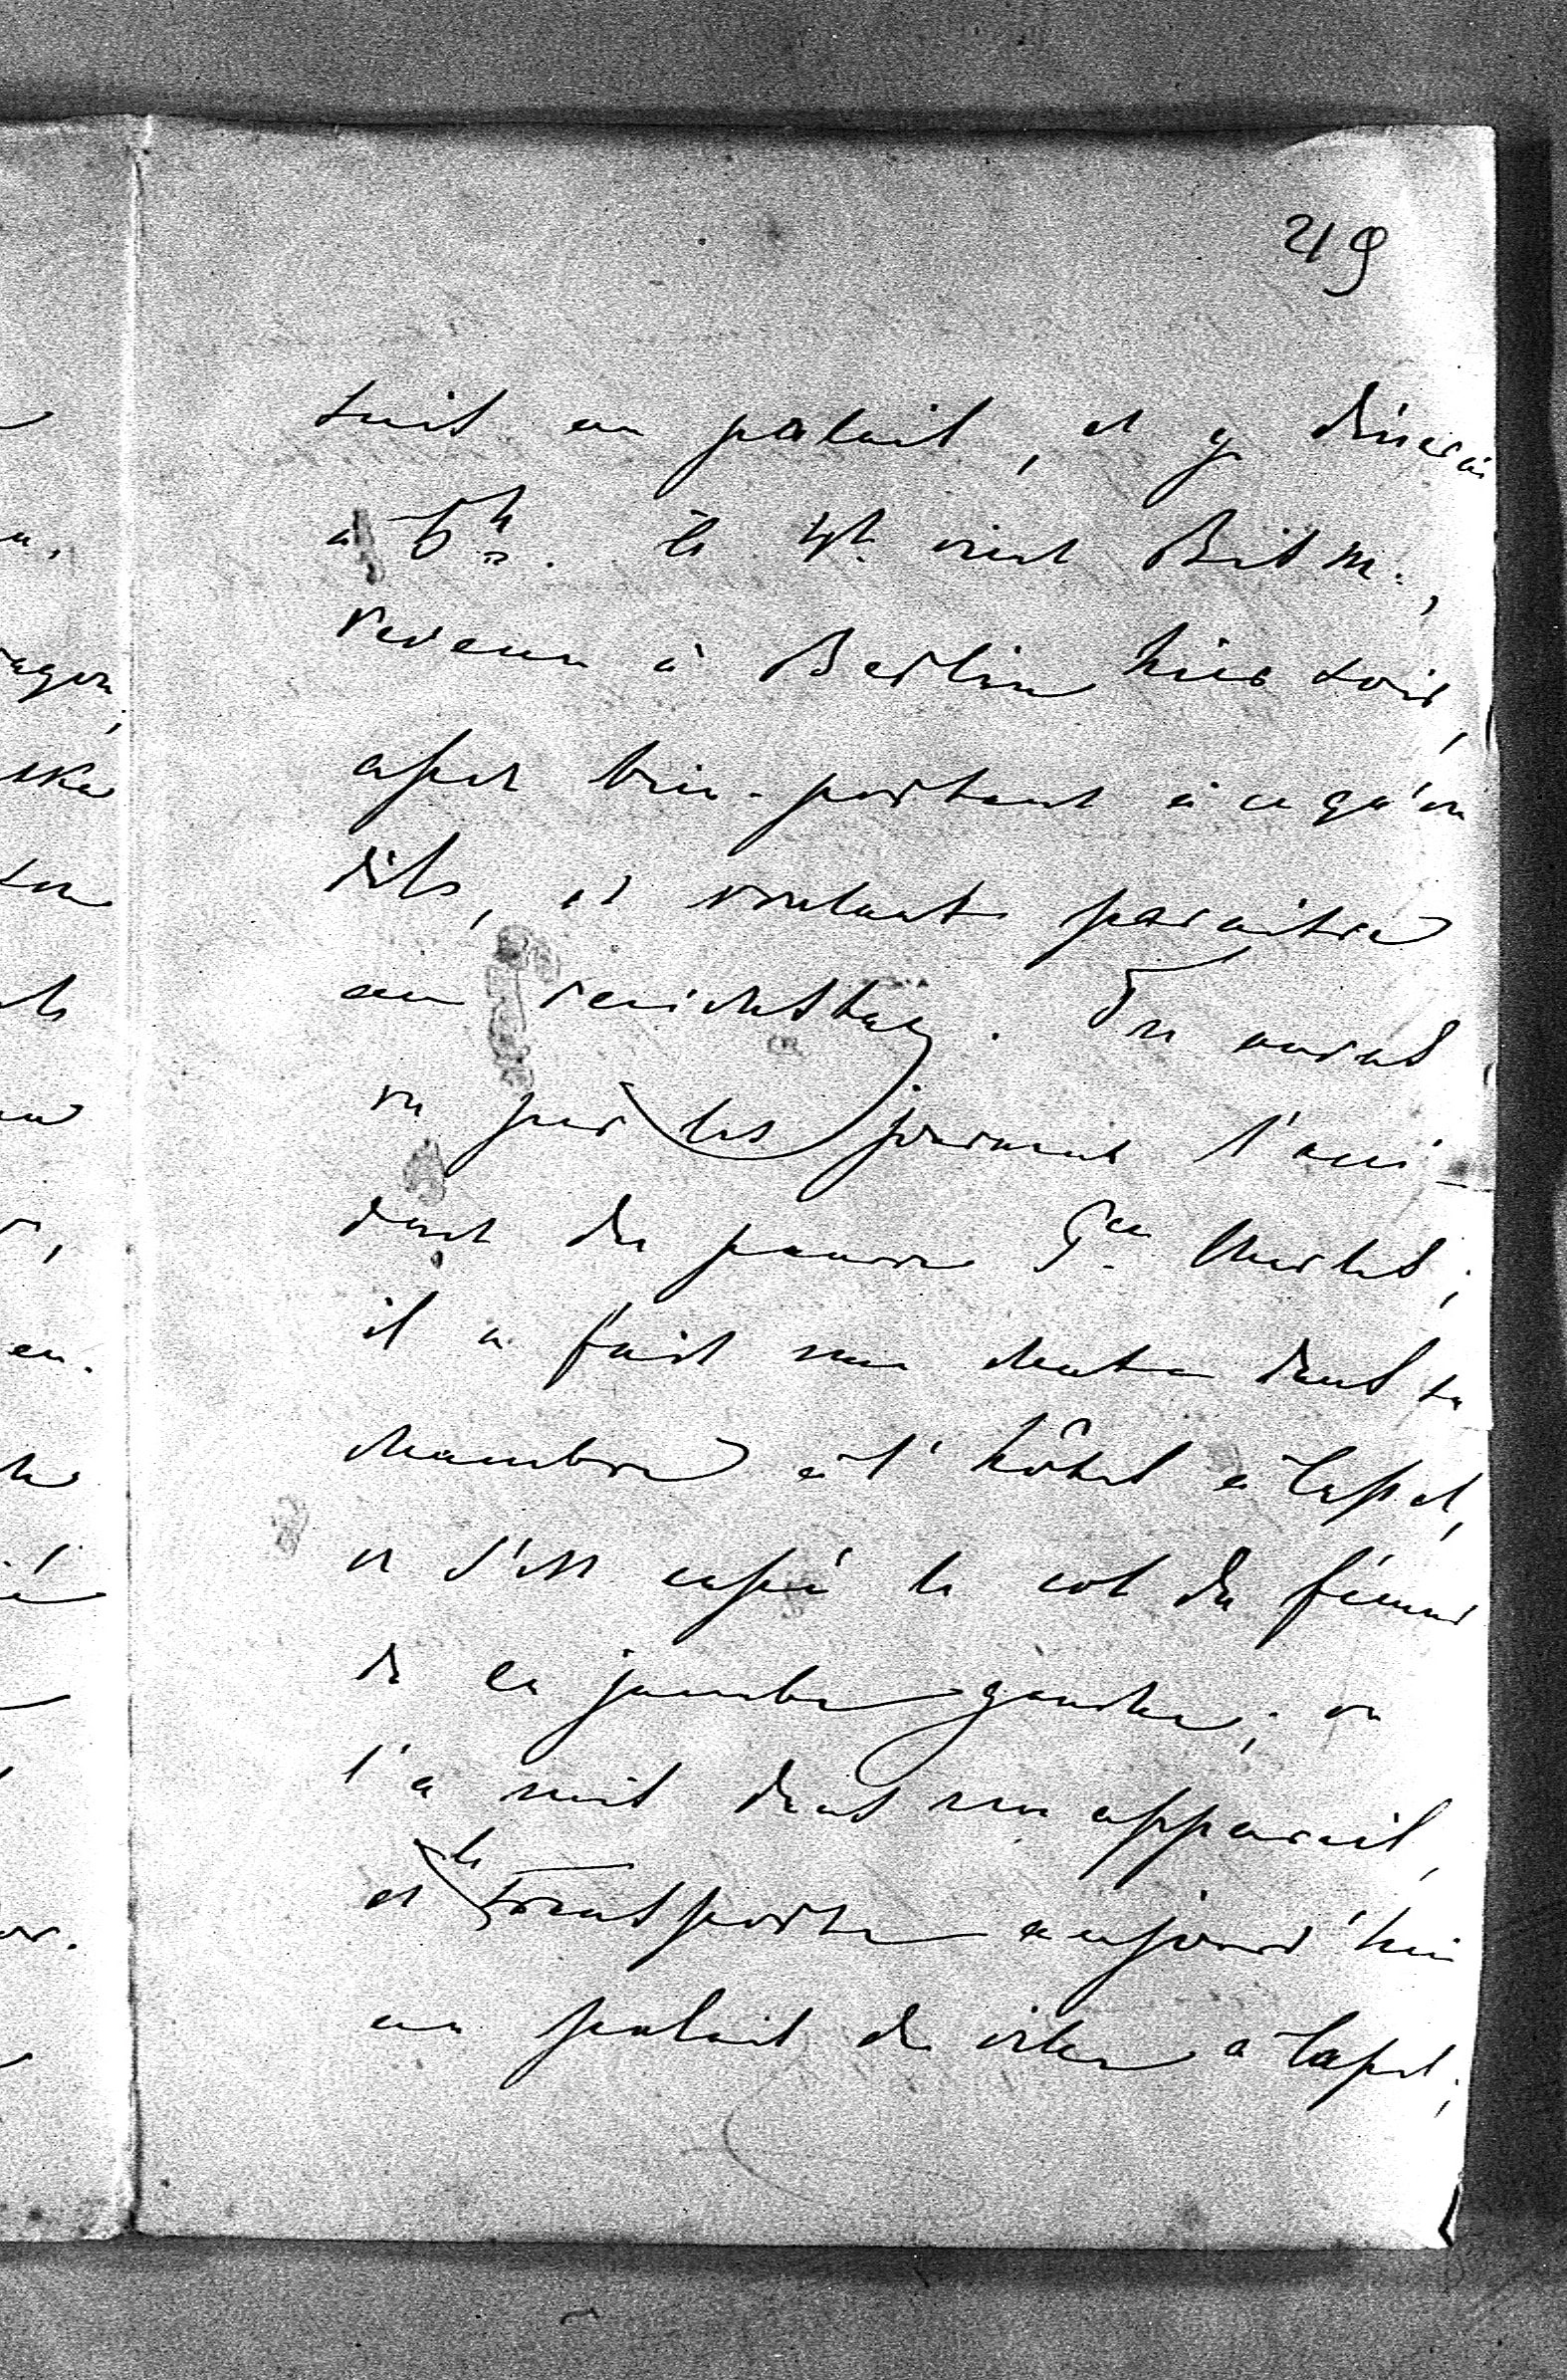 219
suis au palais, et y dînerai
à 5h. à 4h. vient Bism.,
revenu à Berlin hier soir,
assez bien-portant à ce qu'on
dit, et voulant paraître
au reichstag. Tu auras
vu par les journaux l'acci-
dent du pauvre Pce Charles;
il a fait une chute dans sa
chambre à l'hôtel à Cassel,
et s'est cassé le col du fémur
de la jambe gauche; on
l'a mis dans un appareil,
et le transporte aujourd'hui
au palais de ville à Cassel;